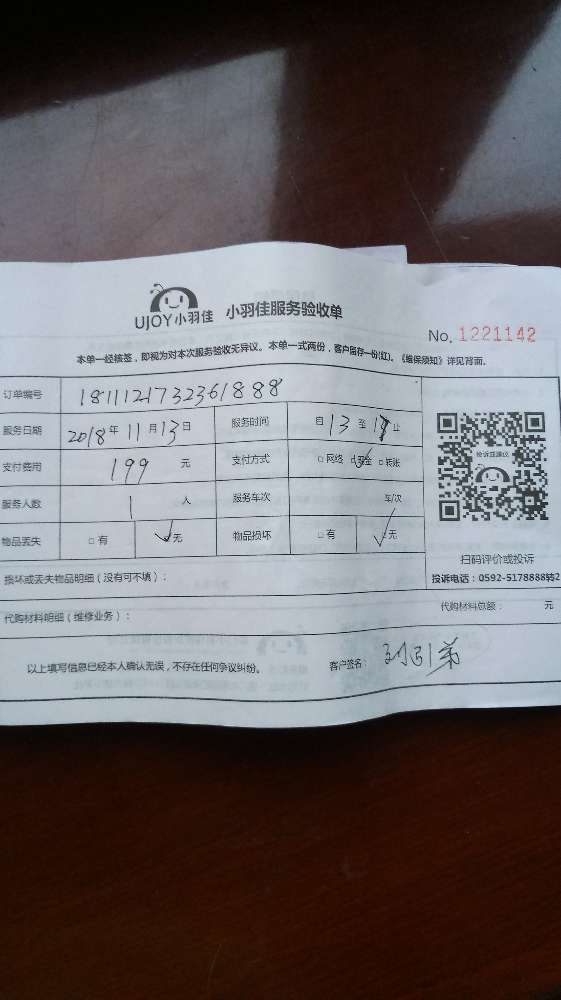 UJOY小羽佳 小羽佳服务验收单
No. 1221142
本单一经核签，即视为对本次服务验收无异议。本单一式两份，客户留存一份(红)。《维保须知》详见背面。
订单编号 1811121732361888
服务日期 2018年11月13日 服务时间 自13至17止
支付费用 199元 支付方式 □网络 ☑现金 □转账
服务人数 1人 服务车次 车/次
物品丢失 □有 ☑无 物品损坏 □有 ☑无
投诉或建议
扫码评价或投诉
投诉电话：0592-5178888转2
损坏或丢失物品明细（没有可不填）：
代购材料明细（维修业务）： 代购材料总额： 元
以上填写信息已经本人确认无误，不存在任何争议纠纷。 客户签名：